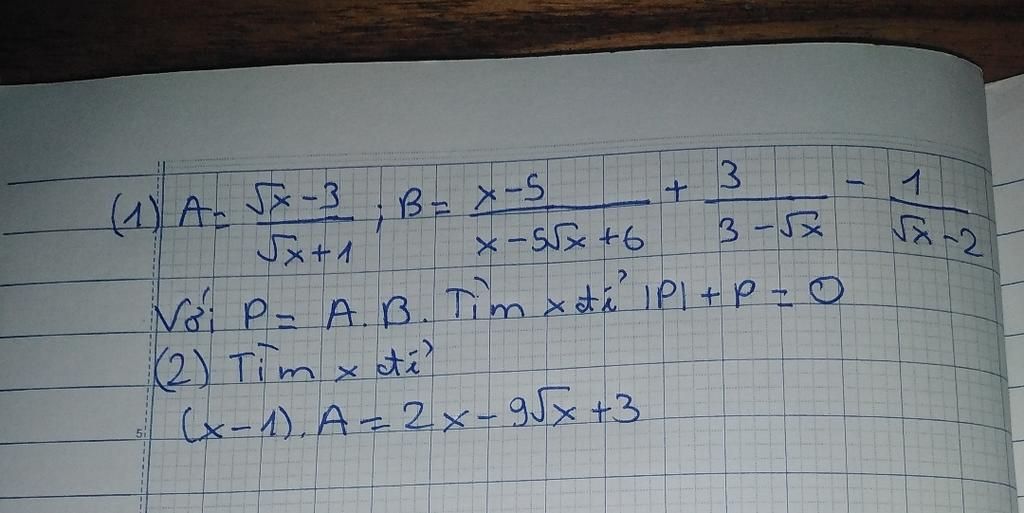 (1) A = (√x - 3)/(√x + 1) ; B = (x - 5)/(x - 5√x + 6) + 3/(3 - √x) - 1/(√x - 2)
Với P = A.B. Tìm x để |P| + P = 0
(2) Tìm x để
(x - 1).A = 2x - 9√x + 3
5